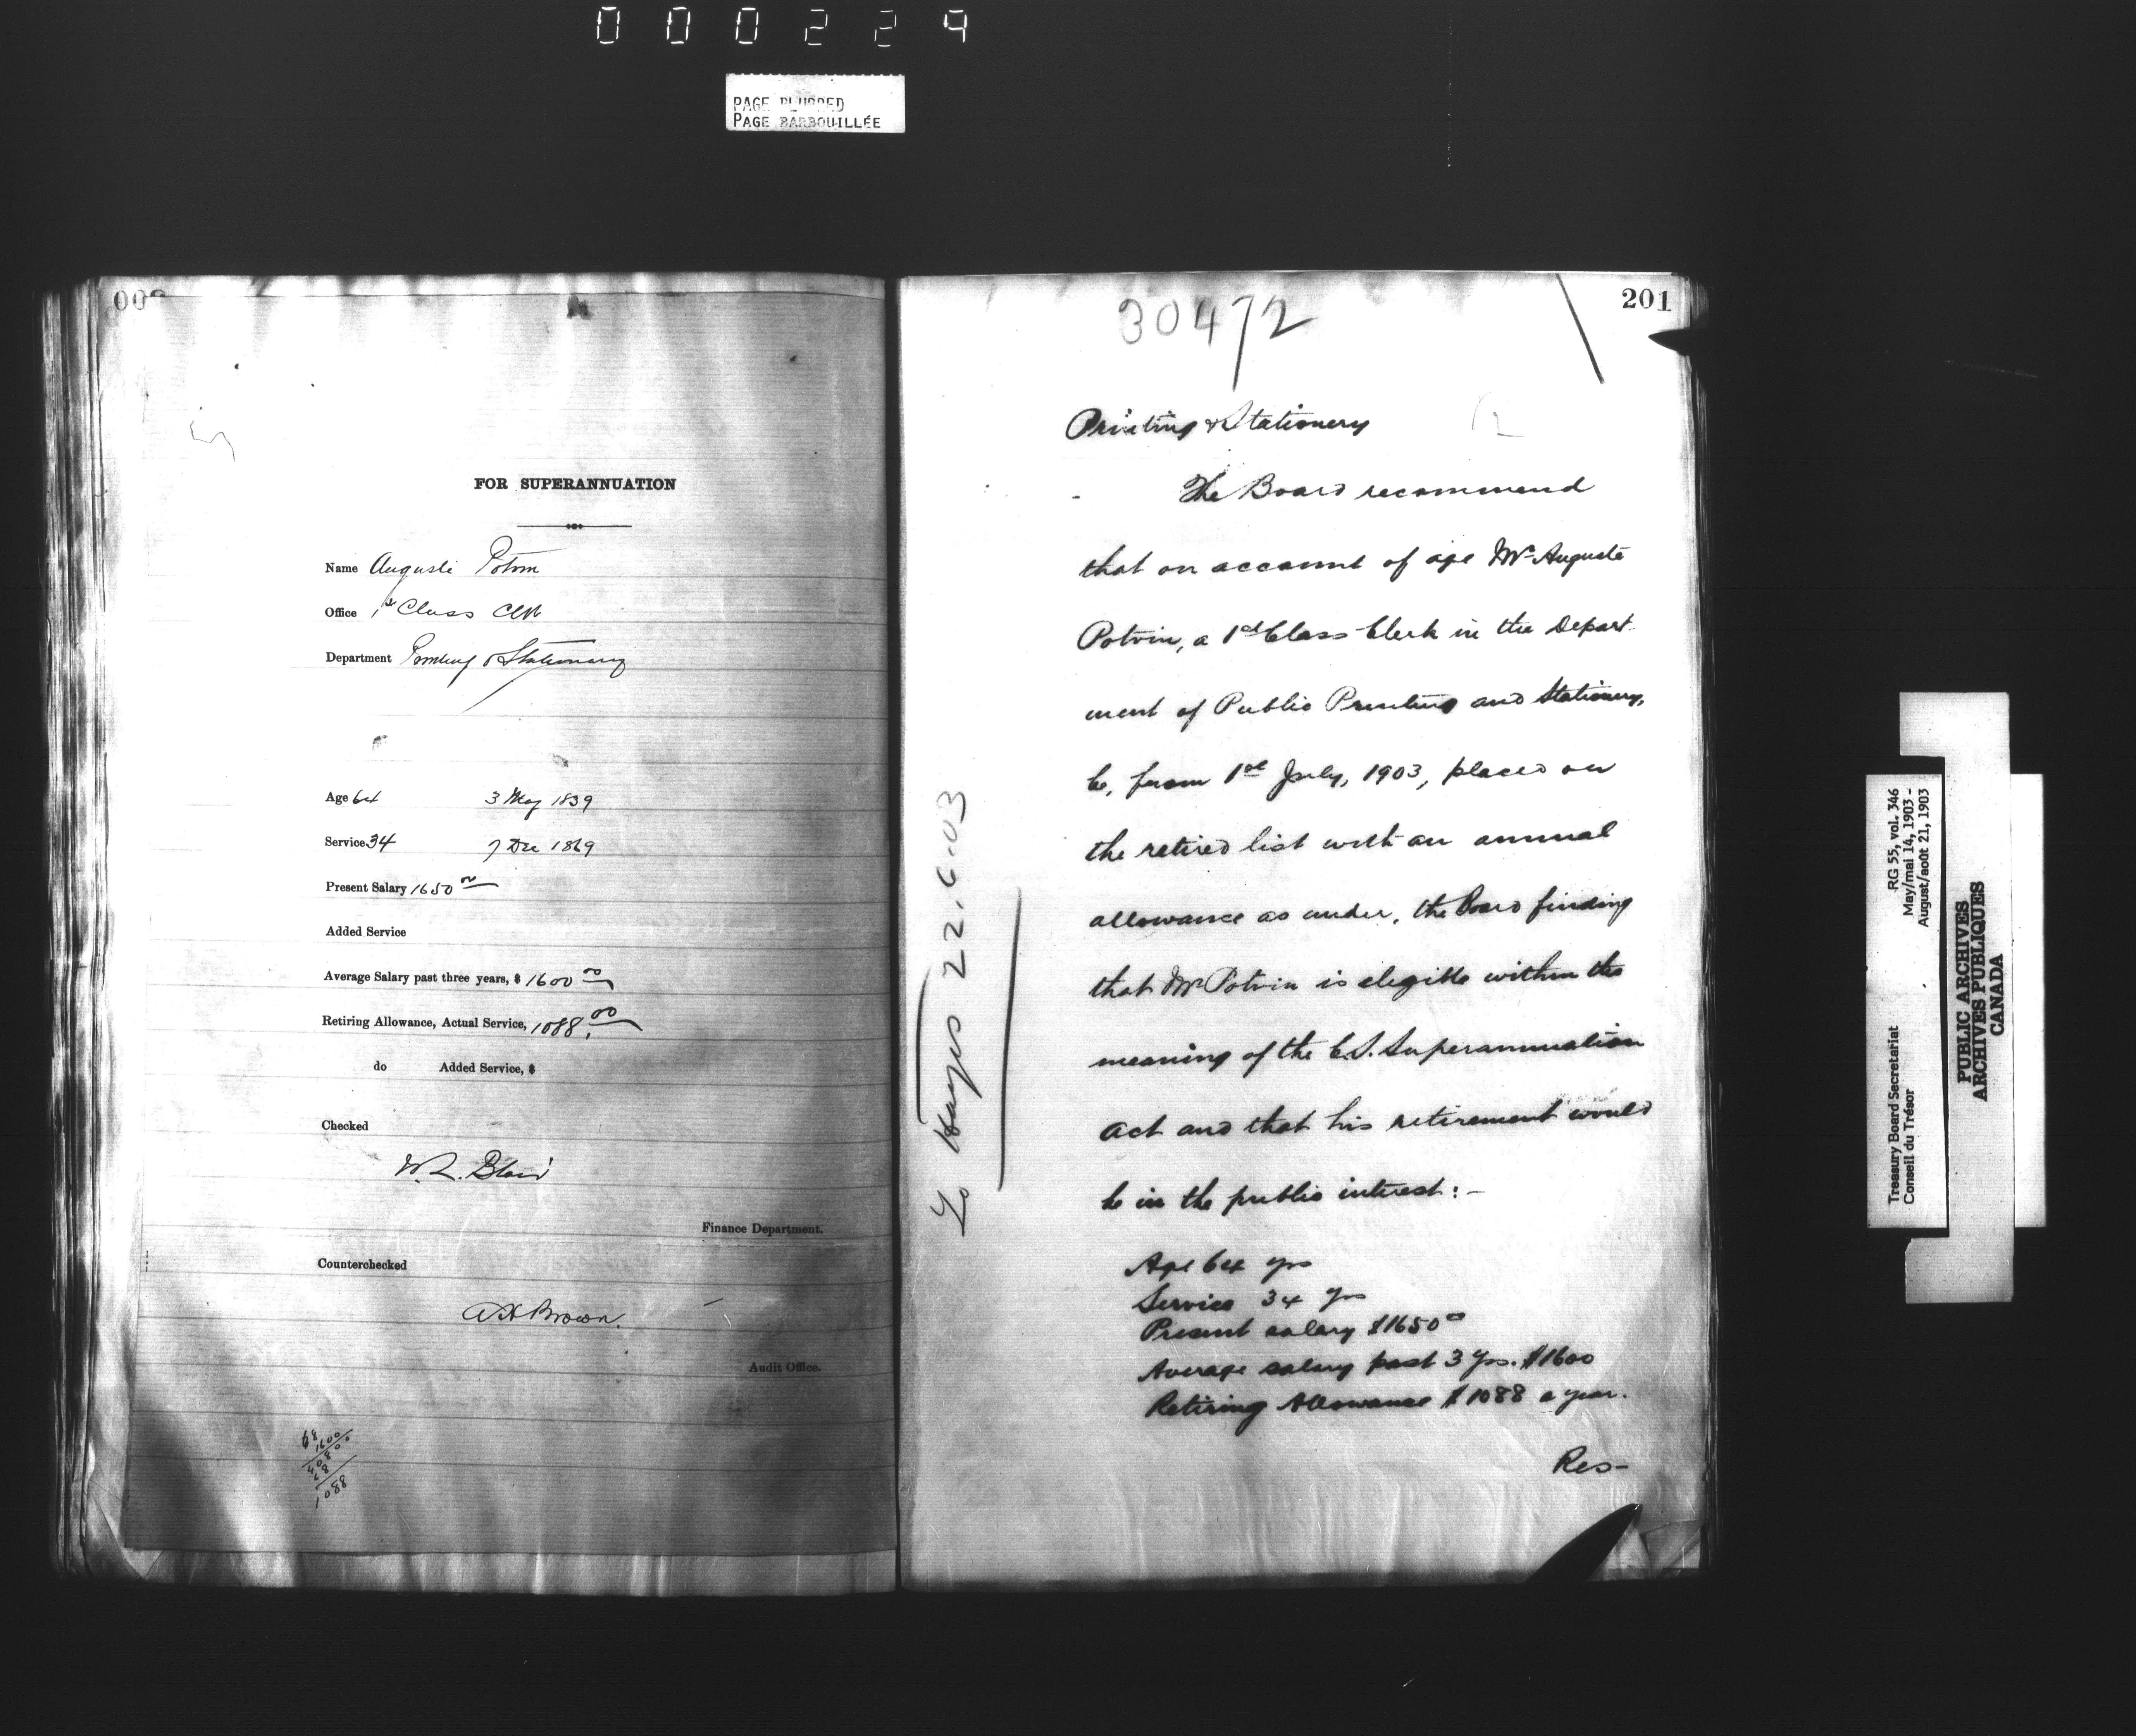 000224
PAGE BLURRED
PAGE BARBOUILLÉE
FOR SUPERANNUATION
Name Auguste Potvin
Office 1st Class Clk
Department Printing & Stationery
Age 64 3 May 1839
Service 34 7 Dec 1869
Present Salary 1650 00
Added Service
Average Salary past three years, $ 1600 00
Retiring Allowance, Actual Service, 1088.00
do Added Service, $
Checked
W. L. Blair
Finance Department.
Counterchecked
A H Brown.
Audit Office.
68
1600
40800
68
1088
201
30472
Printing & Stationery
The Board recommend
that on account of age Mr Auguste
Potvin, a 1st Class Clerk in the Depart-
ment of Public Printing and Stationery,
be, from 1st July, 1903, placed on
the retired list with an annual
allowance as under, the Board finding
that Mr Potvin is elegible within the
meaning of the C.S. Superannuation
Act and that his retirement would
be in the public interest:-
Age 64 yrs
Service 34 yrs
Present salary $1650 00
Average salary past 3 yrs. $1600
Retiring Allowance $1088 a year.
Res-
22.6.03
Treasury Board Secretariat RG 55, vol. 346
Conseil du Trésor May/mai 14, 1903 -
August/août 21, 1903
PUBLIC ARCHIVES
ARCHIVES PUBLIQUES
CANADA